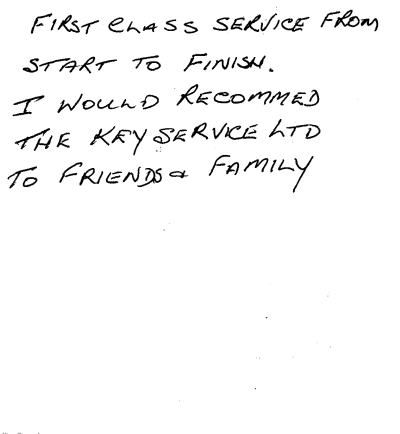 FIRST CLASS SERVICE FROM
START TO FINISH.
I WOULD RECOMMED
THE KEY SERVICE LTD
TO FRIENDS & FAMILY